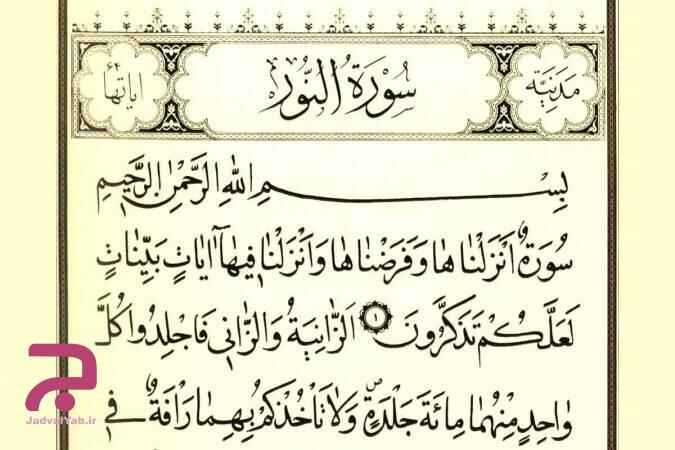 مدنیّة سُورَةُ النُّور ایاتها ۶۴
بِسْمِ اللهِ الرَّحْمٰنِ الرَّحِیمِ
سُورَةٌ اَنْزَلْنٰاهٰا وَ فَرَضْنٰاهٰا وَ اَنْزَلْنٰا فِیهٰا اٰیٰاتٍ بَیِّنٰاتٍ
لَعَلَّكُمْ تَذَكَّرُونَ ۱ اَلزّٰانِیَةُ وَ الزّٰانِی فَاجْلِدُوا كُلَّ
وٰاحِدٍ مِنْهُمٰا مِائَةَ جَلْدَةٍ وَ لٰا تَأْخُذْكُمْ بِهِمٰا رَأْفَةٌ فِی
JadvalYab.ir